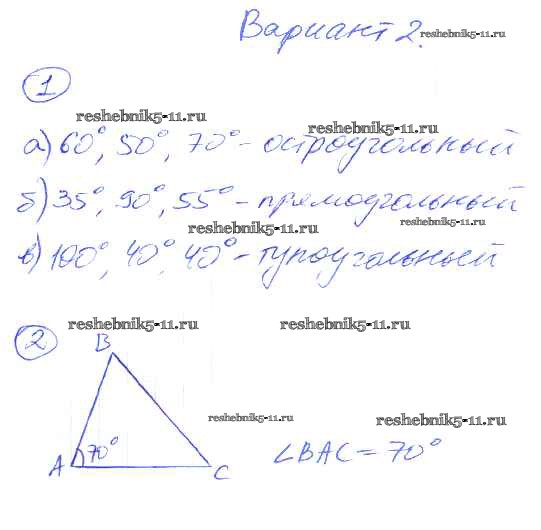 Вариант 2. reshebnik5-11.ru
1
reshebnik5-11.ru
reshebnik5-11.ru
а) 60°, 50°, 70° - остроугольный
б) 35°, 90°, 55° - прямоугольный
reshebnik5-11.ru
reshebnik5-11.ru
в) 100°, 40°, 40° - тупоугольный
2 reshebnik5-11.ru reshebnik5-11.ru
B
reshebnik5-11.ru reshebnik5-11.ru
70° ∠BAC = 70°
A C